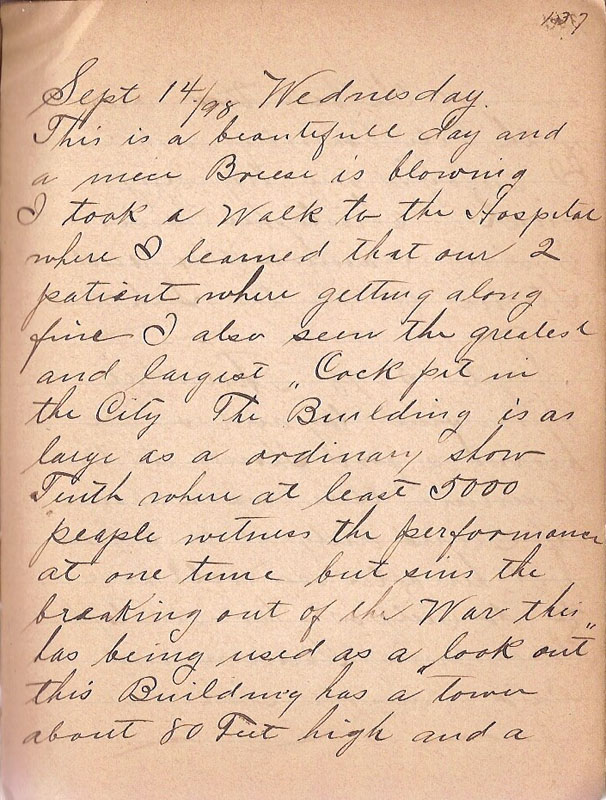 137
Sept 14/98 Wednesday.
This is a beautifull day and
a niece Breese is blowing
I took a Walk to the Hospital
where I learned that our 2
patient where getting along
fine I also seen the greatest
and largest „ Cock pit in
the City The Building is as
large as a ordinary show
Tenth where at least 5000
people witness the performance
at one time but sins the
breaking out of the War this
has being used as a „look out"
this Building has a tower
about 80 Feet high and a